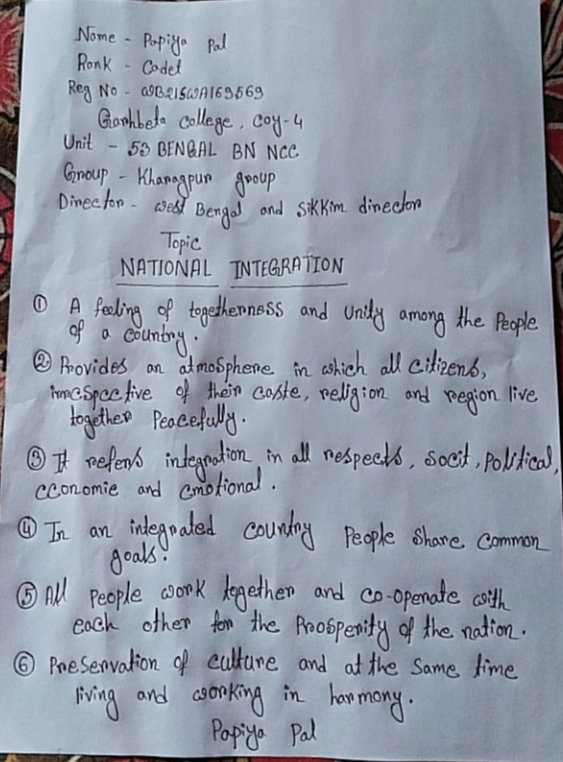 Name - Papiya Pal
Rank - Cadet
Reg No - WB21SWA169569
Garhbeta college, coy-4
Unit - 53 BENGAL BN NCC
Group - Kharagpur group
Director - west Bengal and Sikkim director
Topic
NATIONAL INTEGRATION
① A feeling of togetherness and Unity among the People
of a country.
② Provides an atmosphere in which all citizens,
irrespective of their caste, religion and region live
together Peacefully.
③ It refers integration in all respects, socit, political,
economie and emotional.
④ In an integrated country People share common
goals.
⑤ All People work together and co-operate with
each other for the Prosperity of the nation.
⑥ Preservation of culture and at the same time
living and working in harmony.
Papiya Pal